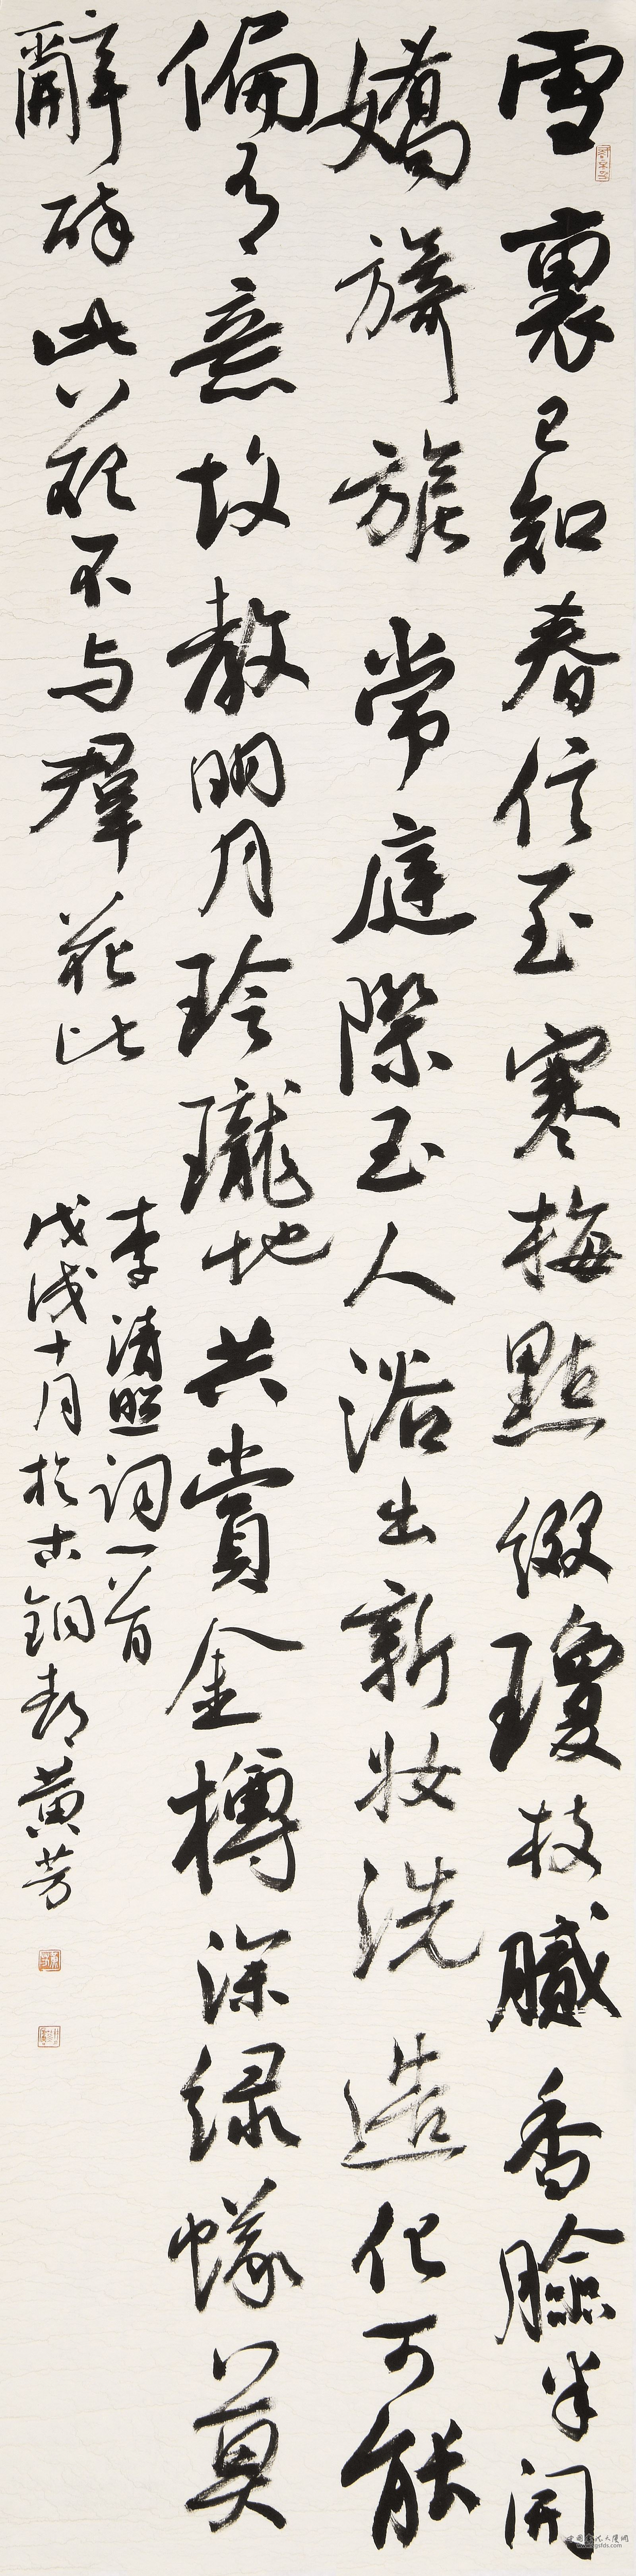 雪裏已知春信至寒梅點綴瓊枝膩香臉半開
嬌旖旎常庭際玉人浴出新妝洗造化可能
偏有意故教明月玲瓏地共賞金樽深綠蟻莫
辭醉此花不与羣花比
李清照詞一首
戊戌十月於古銅都黄芳